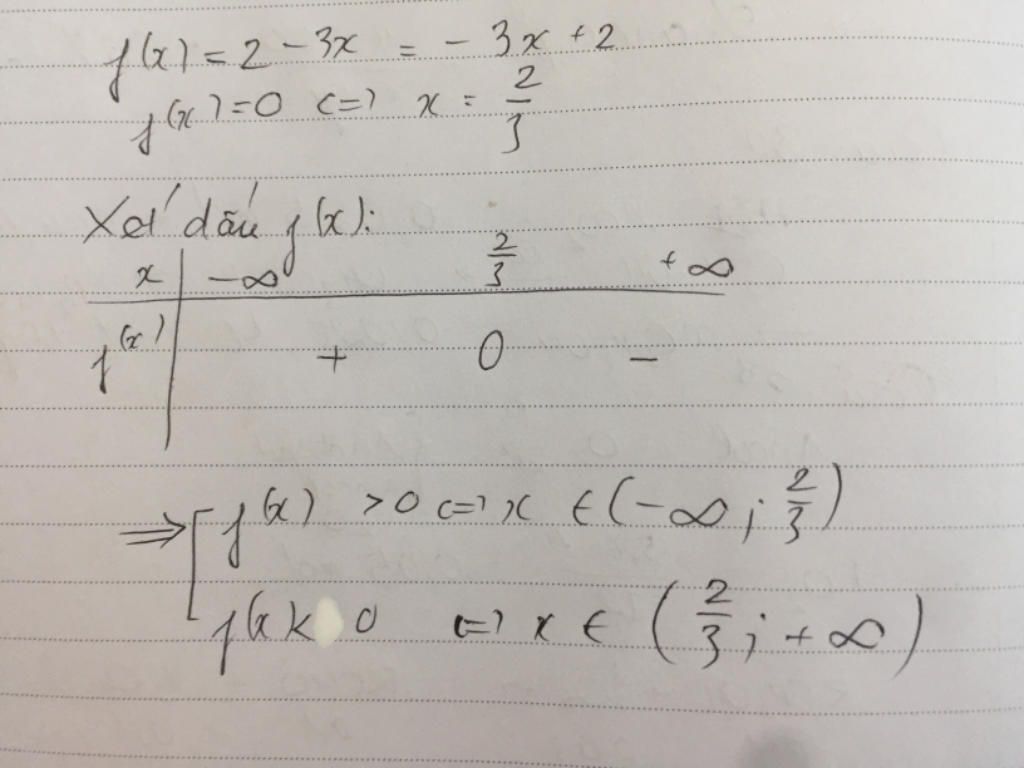 f(x) = 2 - 3x = - 3x + 2
f(x) = 0 <=> x = 2/3
Xét dấu f(x):
x | -∞ 2/3 +∞
f(x) | + 0 -
=> [ f(x) > 0 <=> x ∈ (-∞ ; 2/3)
f(x) < 0 <=> x ∈ (2/3 ; +∞)